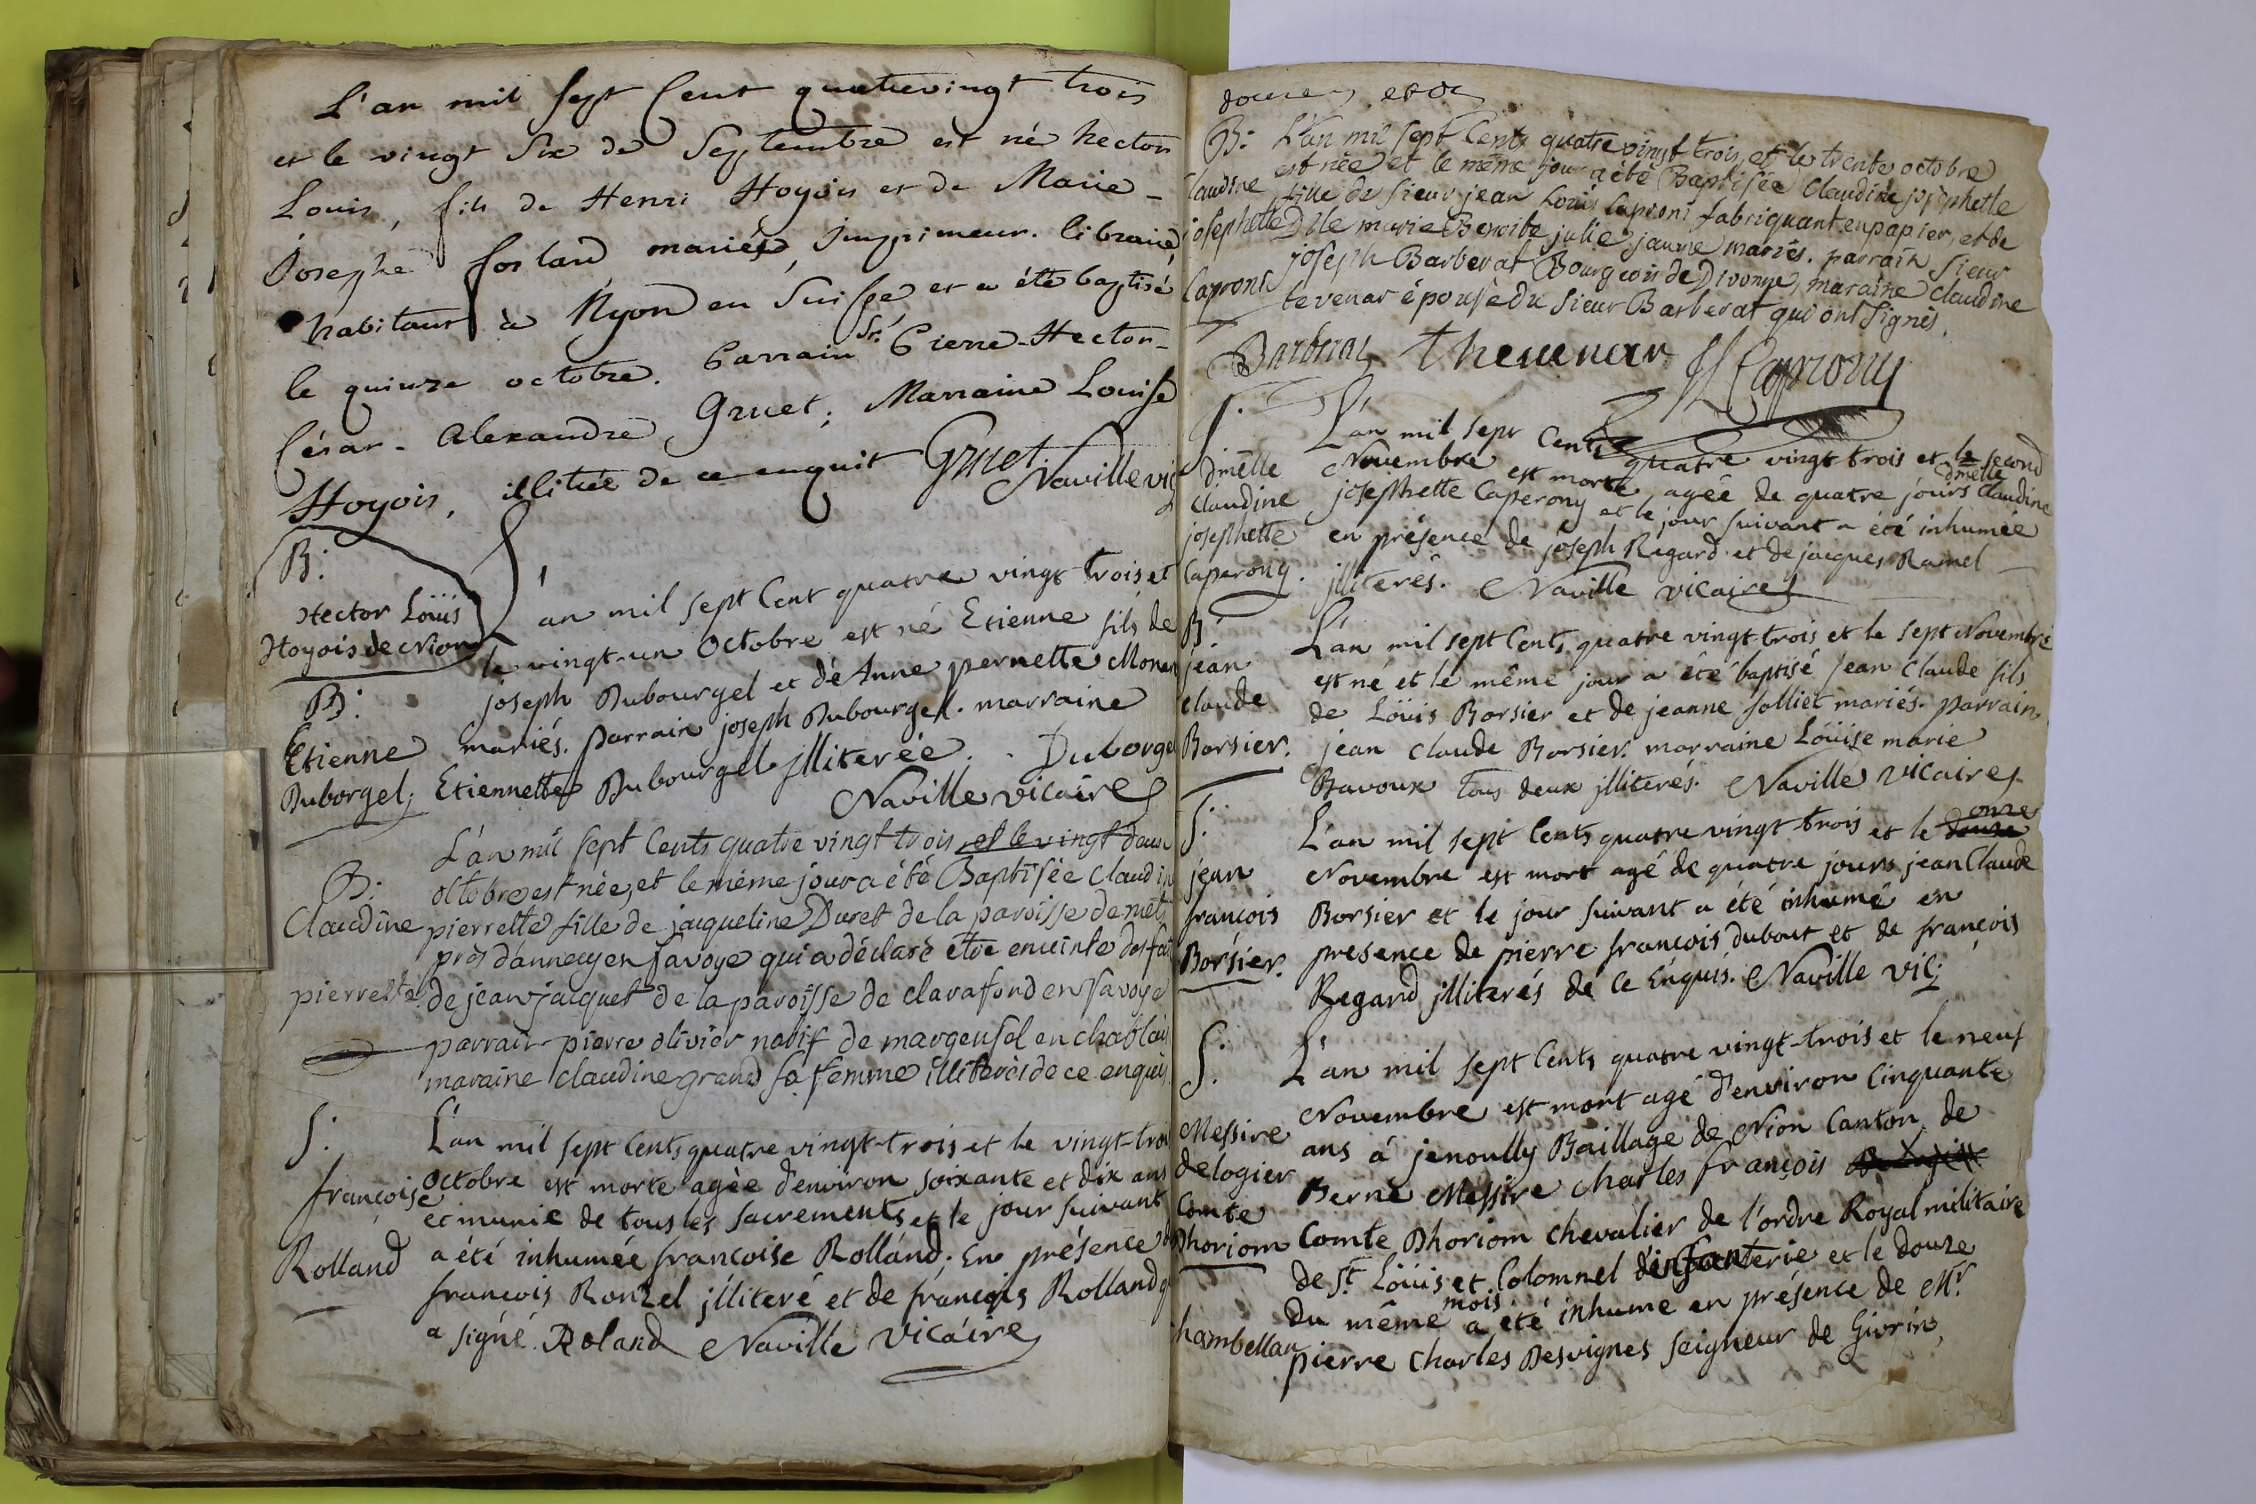 L'an mil sept Cent quatrevingt trois
et le vingt Six de Septembre est né hector
Louis, fils de Henri Hoyois et de Marie-
Josephe forland mariés, imprimeur. libraire
habitant à Nyon en Suisse et a été baptisé
le quinze octobre. Parrain Sr. Pierre-Hector-
César-Alexandre Gruet; Marraine Louise
Hoyois, illitrée de ce enquit Gruet.
Naville vic
B:
Hector Loüis
Hoyois de Nion
L'an mil sept Cent quatre vingt-trois et
le vingt-un Octobre est né Etienne fils de
joseph Dubourgel et de Anne pernette Monen
mariés. parrain joseph Dubourgel. marraine
Etiennette Dubourgel jlliterée. Duborge
Naville vicaire
B:
Etienne
Duborgel;
L'an mil sept Cents quatre vingt trois et le vingt deux
octobre est née, et le même jour a été Baptisée Claudin
pierrette fille de jacqueline Duret de la paroisse de met
près d'annecy en Savoye qui a déclaré être enceinte des fai
de jean jacquet de la paroisse de clarafond en Savoye
parrain pierre olivier natif de margensel en chablais
maraine claudine grand sa femme illiterés de ce enquis
B:
Claudine
pierrette
L'an mil sept Cents quatre vingt-trois et le vingt-troi
Octobre est morte agée d'environ soixante et dix ans
et munie de tous les sacrements et le jour suivant
a été inhumée francoise Rolland. En présence d
francois Ronzel jlliteré et de françois Rolland q
a signé. Roland Naville vicaire
S:
françoise
Rolland
B: L'an mil sept Cents quatre vingt trois, et le trente octobre
est née et le même jour a été Baptisée Claudine josephette
fille de Sieur jean Louis Caproni fabriquant en papier, et de
Dlle marie Benoite julie jaume mariés. parrain Sieur
joseph Barberat Bourgeois de Divonne, maraine Claudine
tevenar épouse du Sieur Barberat qui ont signés.
Claudine
josephette
Caproni
Barberat thevenar JL Caprony
S:
dmelle
Claudine
josephette
Caperony.
L'an mil sept Cents quatre vingt trois et le second
Novembre est morte, agée de quatre jours dmelle Claudine
josephette Caperony et le jour suivant a été inhumée
en présence de joseph Regard et de jacques Ramel
jlliterés. Naville vicaire
B:
jean
claude
Borsier.
L'an mil sept Cents quatre vingt-trois et le sept Novembre
est né et le même jour a été baptisé jean Claude fils
de Loüis Borsier et de jeanne Solliet mariés. parrain
jean Claude Borsier. marraine Loüise marie
Bavoux tous deux jlliterés. Naville vicaire
S:
jean
françois
Borsier.
L'an mil sept Cents quatre vingt-trois et le douze onze
Novembre est mort agé de quatre jours jean Claude
Borsier et le jour suivant a été inhumé en
presence de pierre francois dubout et de françois
Regard jlliterés de ce Enquis. Naville vic;
S:
Messire
de logier
Comte
Dhoriom
chambellan
L'an mil sept Cents quatre vingt-trois et le neuf
Novembre est mort agé d'environ Cinquante
ans à jenoully Baillage de Nion Canton de
Berne Messire charles françois
Comte Dhoriom chevalier de l'ordre Royal militaire
de St. Loüis et Colomnel d'infanterie et le douze
du même mois a été inhume en présence de Mr.
pierre Charles Desvignes Seigneur de Givrins,